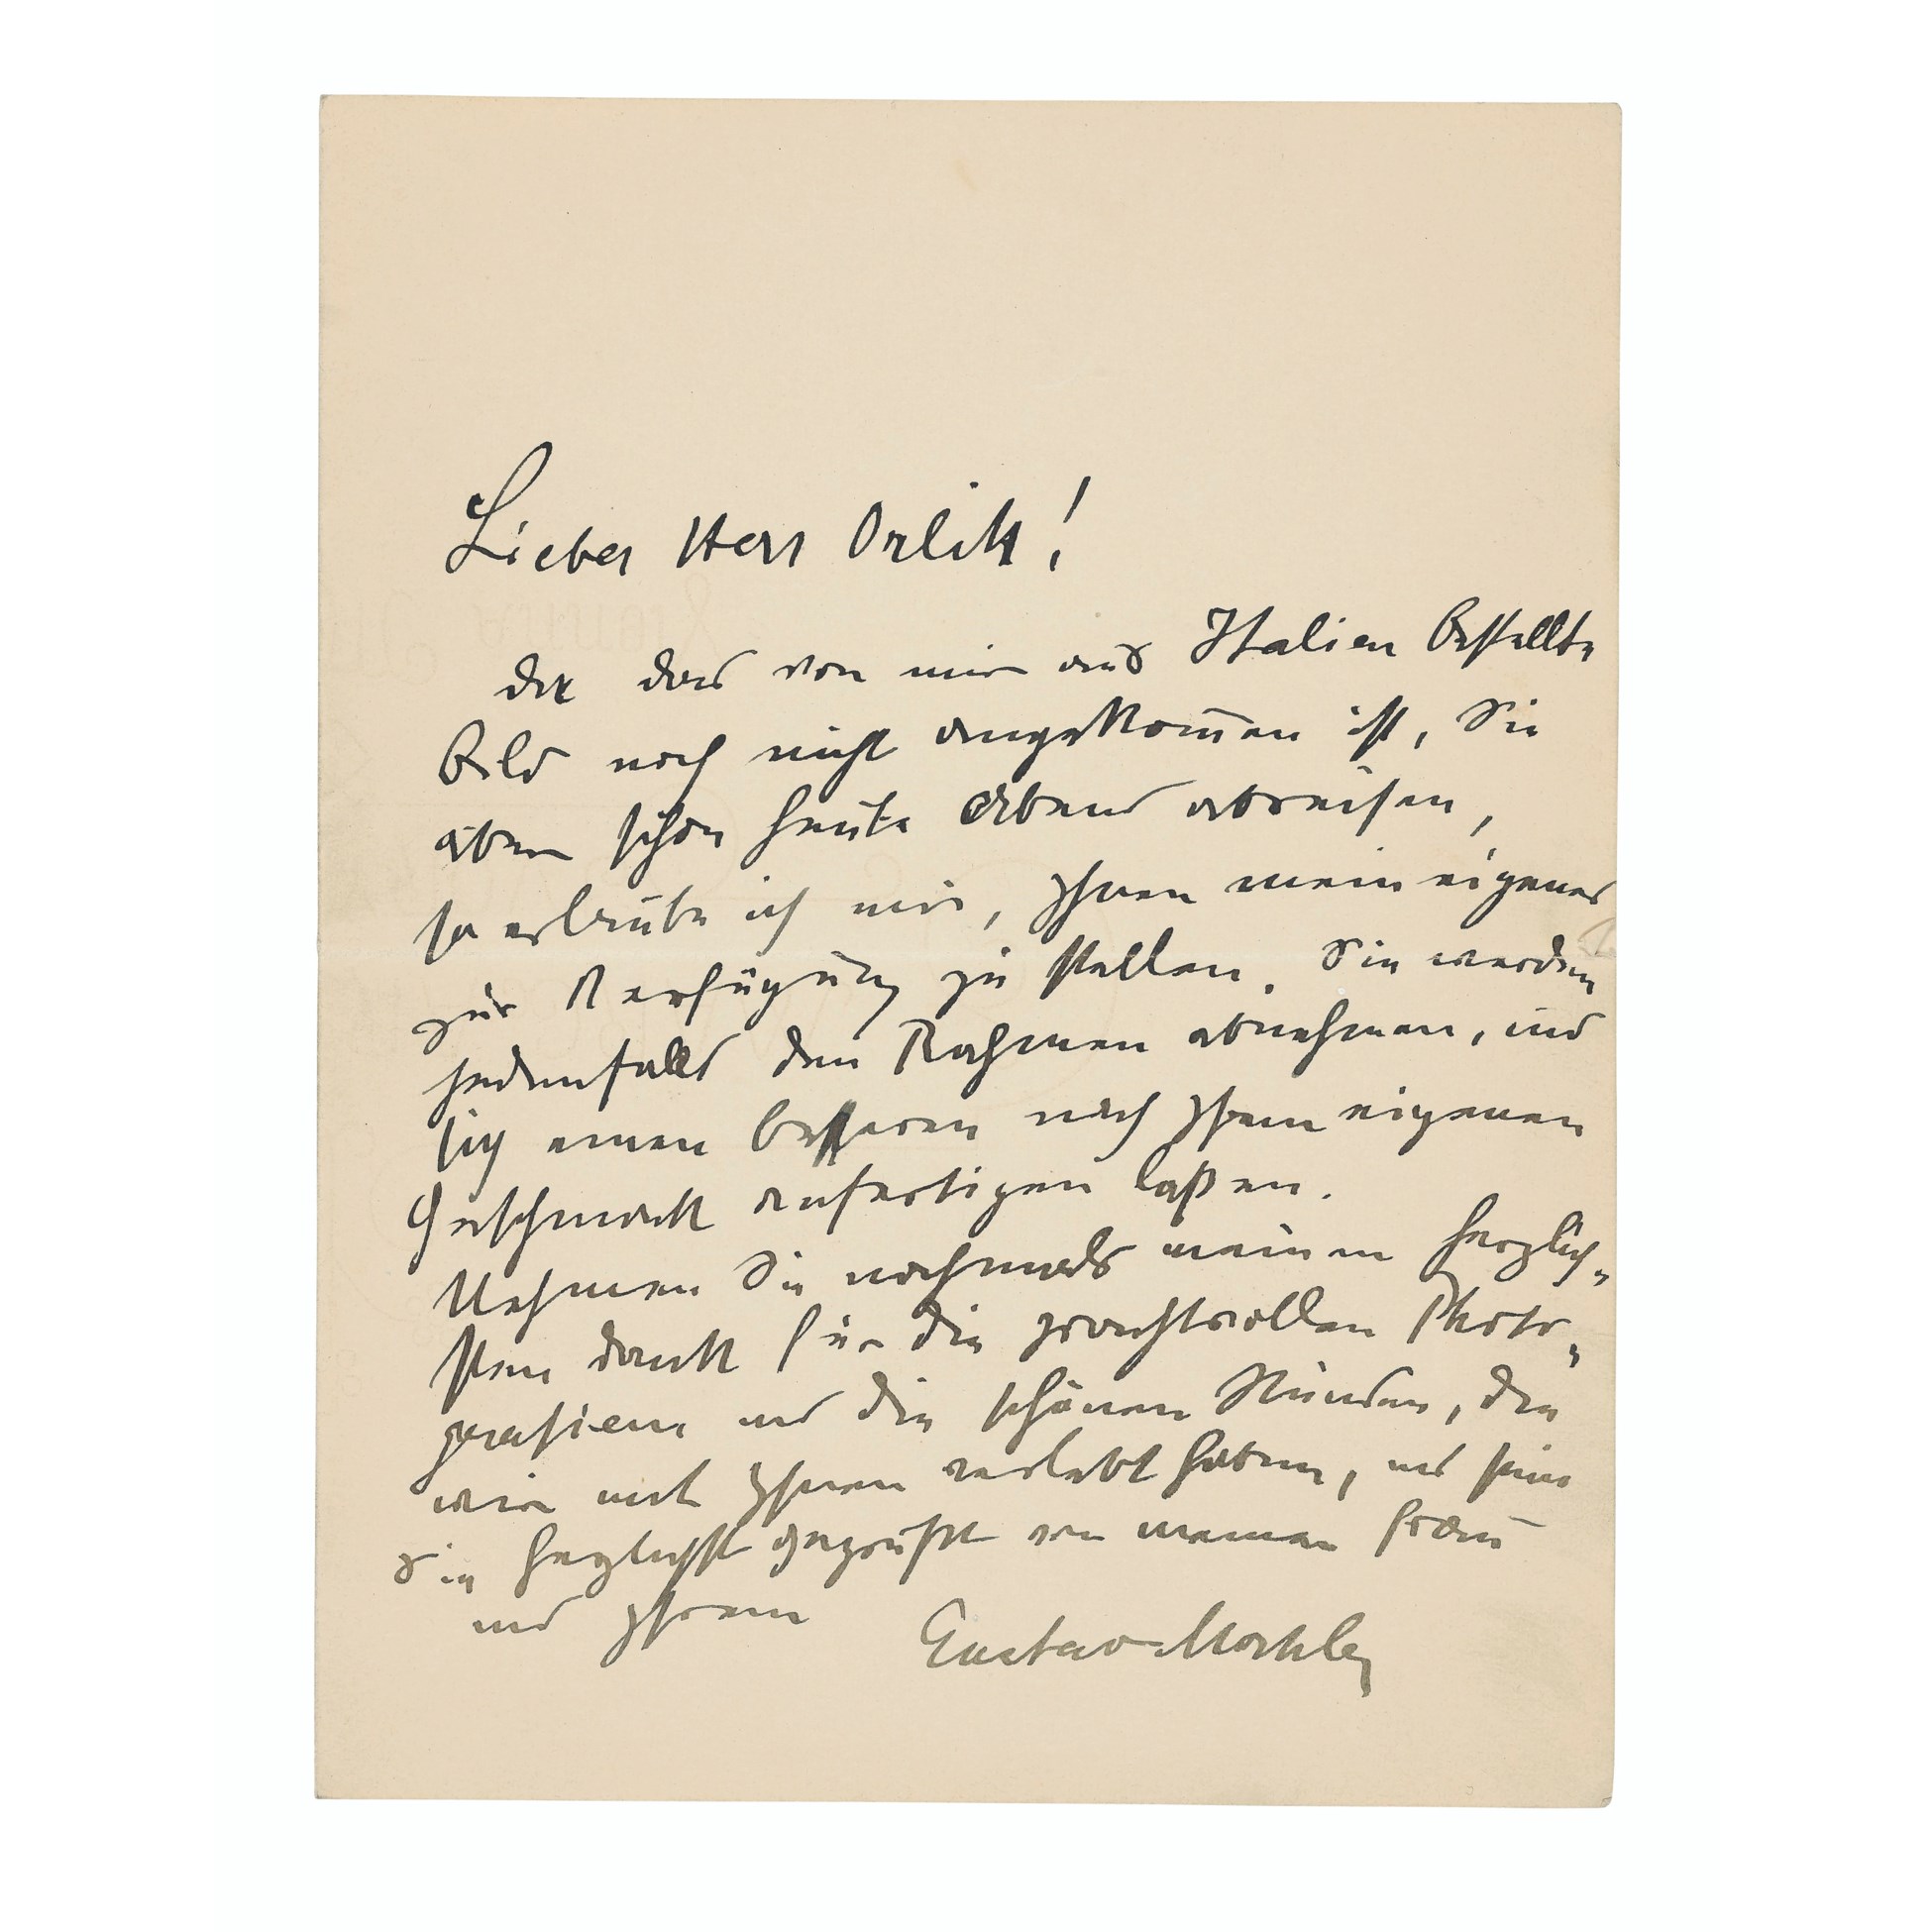 Lieber Herr Orlik!
da das von mir aus Italien bestellte
Bild noch nicht angekom̅en ist, Sie
aber schon heute Abend abreisen,
so erlaube ich mir, Ihnen mein eigenes
zur Verfügung zu stellen. Sie werden
jedenfalls den Rahmen abnehmen, und
sich einen besseren nach Ihrem eigenen
Geschmack anfertigen laßen.
Nehmen Sie nochmals meinen herzlich„
sten Dank für die prachtvollen Photo„
grafien und die schönen Stunden, die
wir mit Ihnen verlebt haben, und seien
Sie herzlichst gegrüßt von meiner Frau
und Ihrem
Gustav Mahler